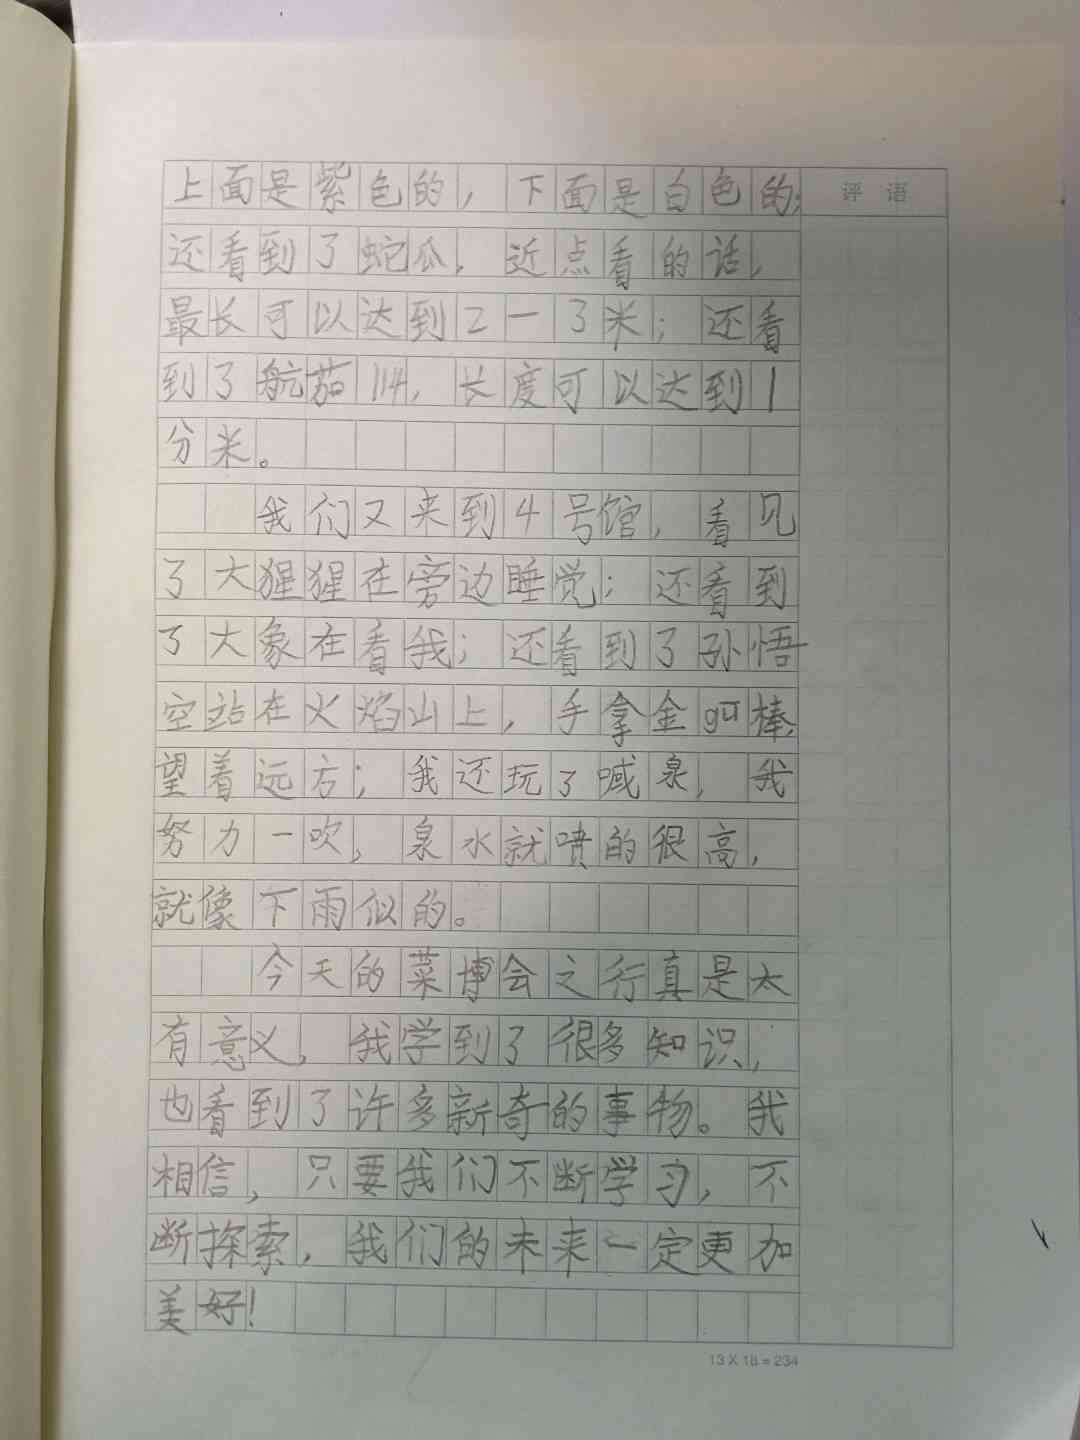 上面是紫色的，下面是白色的；
评语
还看到了蛇瓜，近点看的话，
最长可以达到2一3米；还看
到了航茄114，长度可以达到1
分米。
我们又来到4号馆，看见
了大猩猩在旁边睡觉；还看到
了大象在看我；还看到了孙悟
空站在火焰山上，手拿金gū棒，
望着远方；我还玩了喊泉，我
努力一吹，泉水就喷的很高，
就像下雨似的。
今天的菜博会之行真是太
有意义，我学到了很多知识，
也看到了许多新奇的事物。我
相信，只要我们不断学习，不
断探索，我们的未来一定更加
美好！
13 X 18 = 234